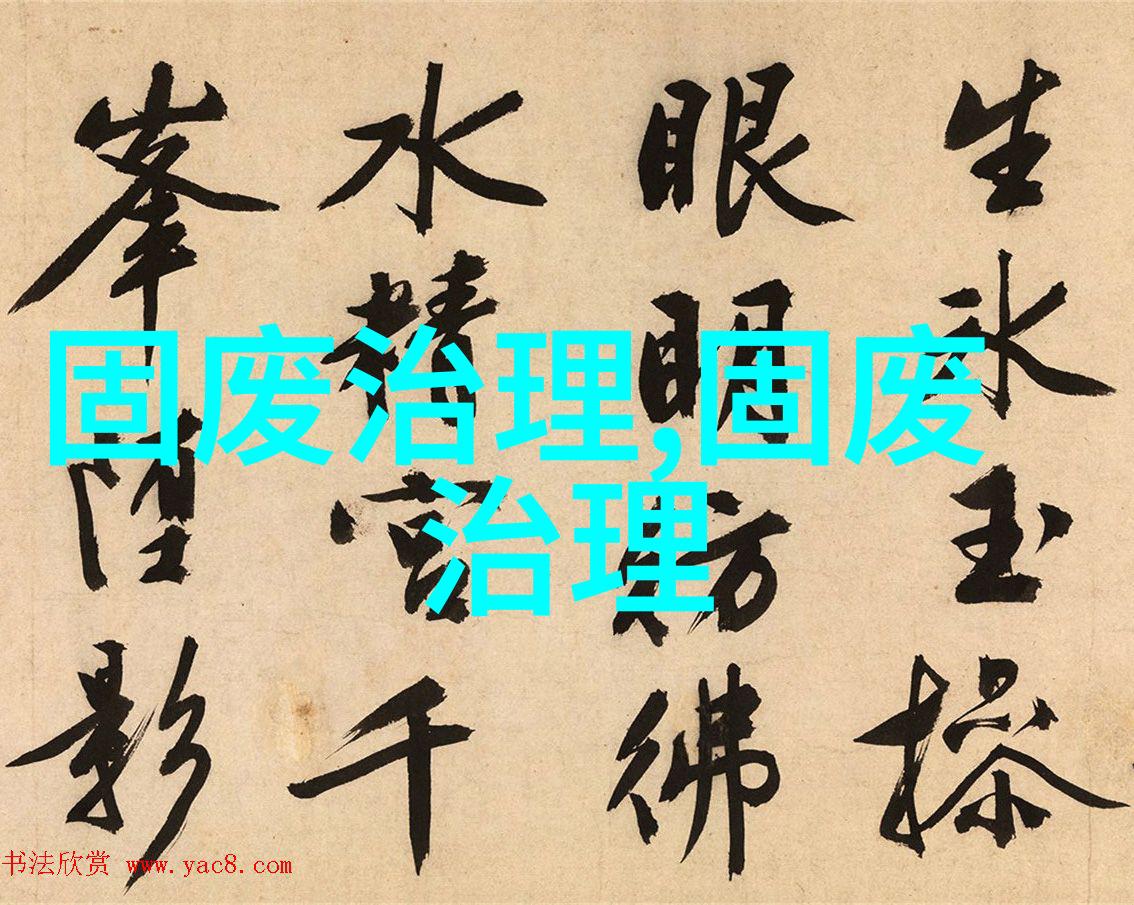 生冰玉操
眼明彷彿
水精宮千
峯堕影
固废治理,固废
治理
书法欣赏 www.yac8.com